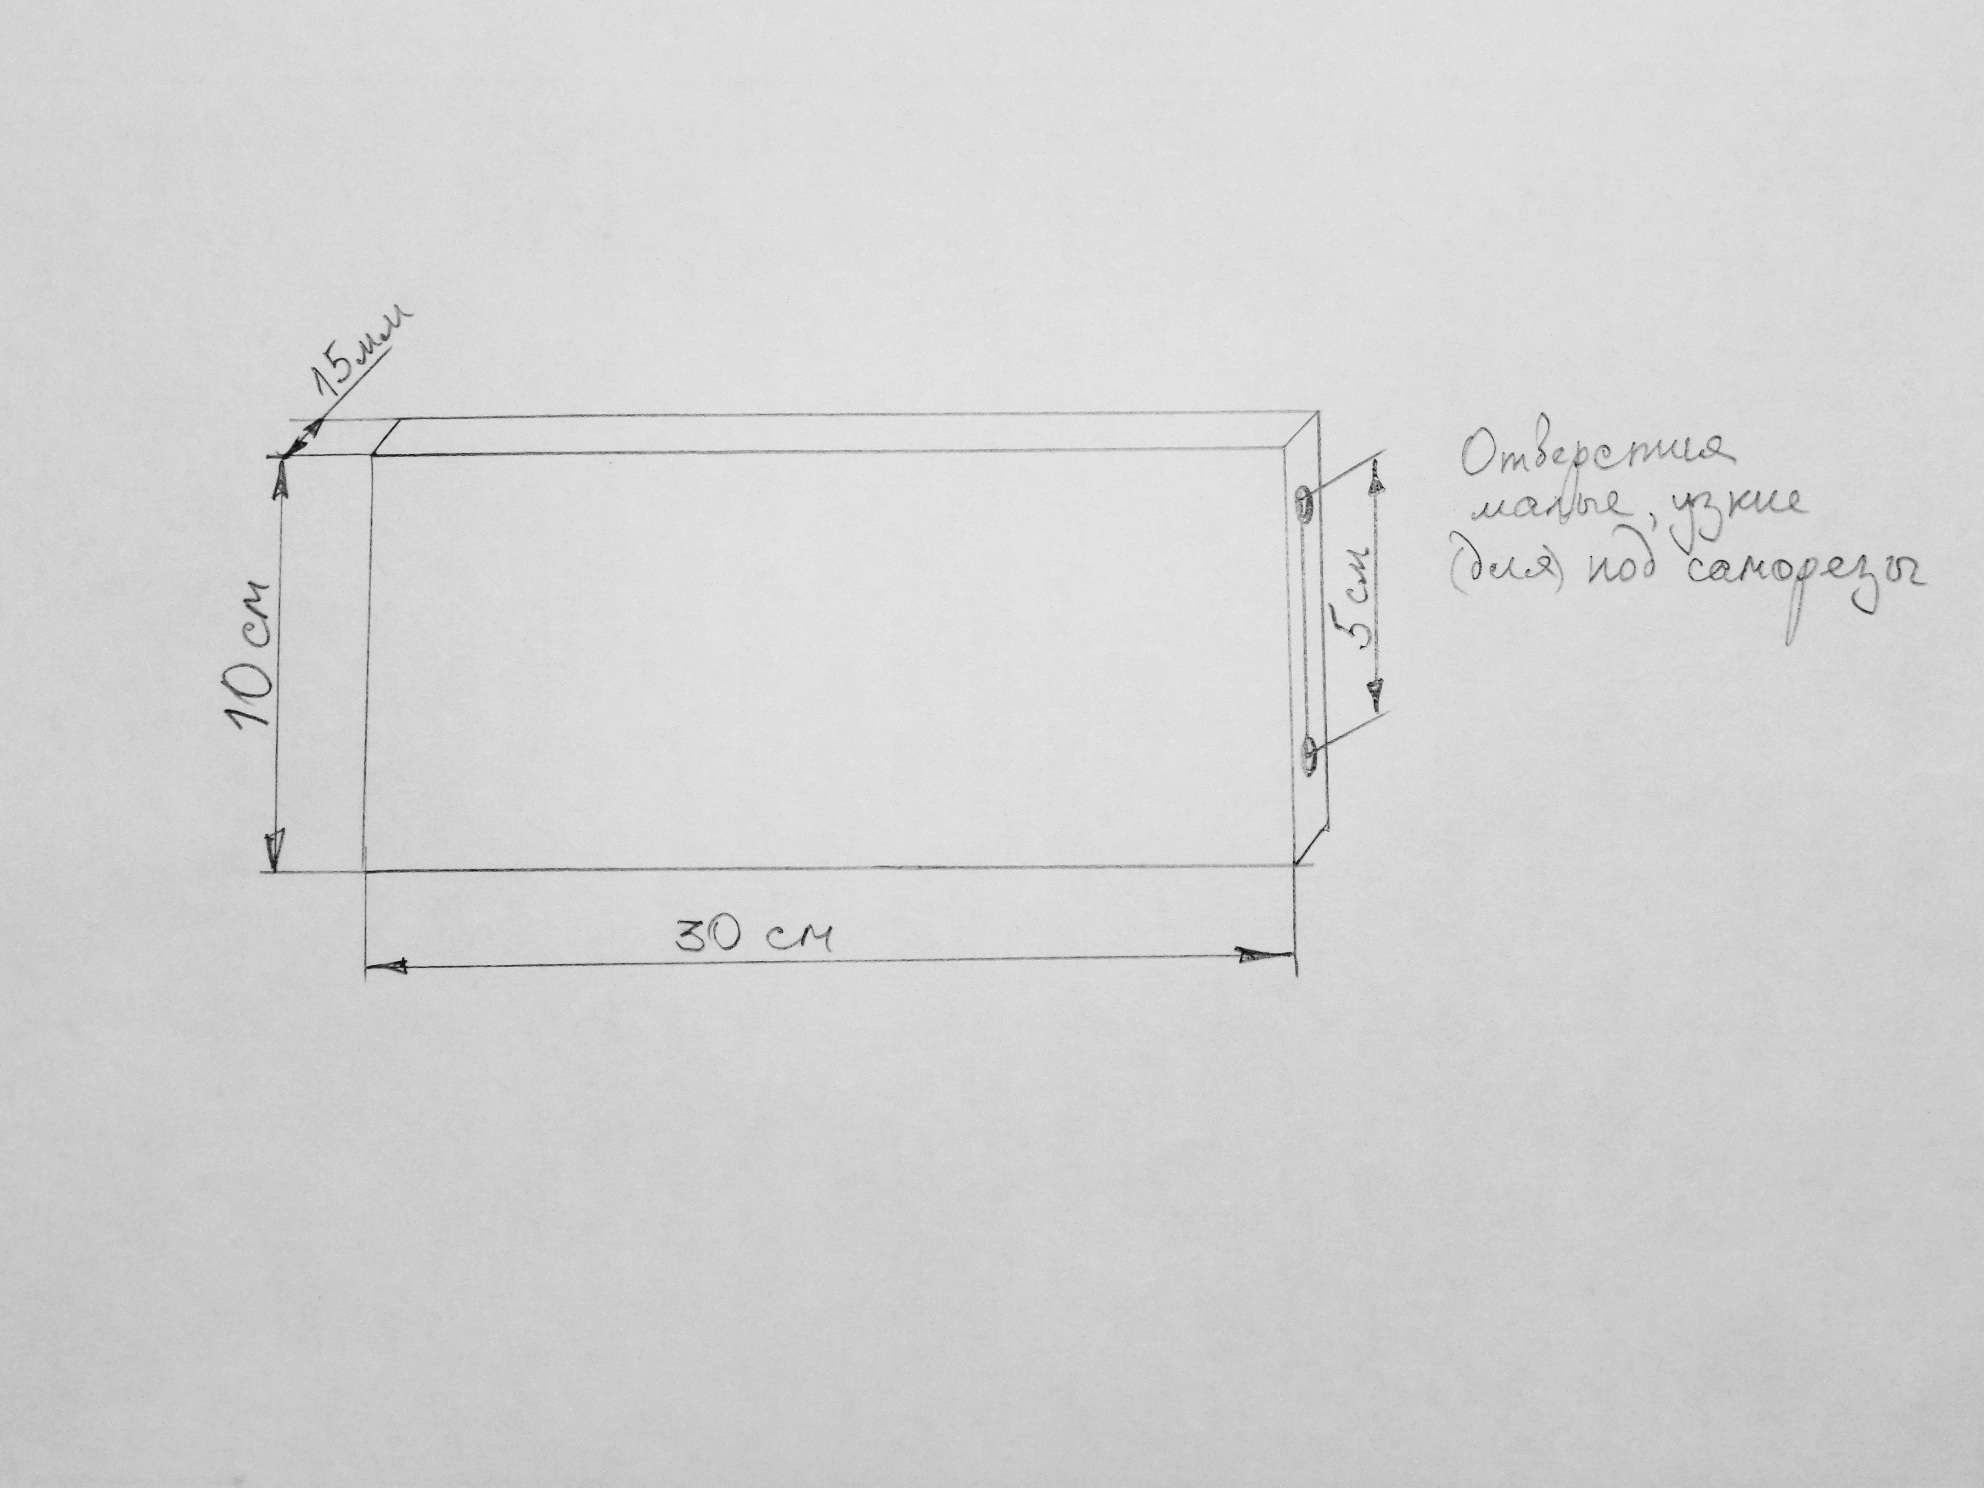 15мм
10 см
5 см
30 см
Отверстия
малые, узкие
(для) под саморезы